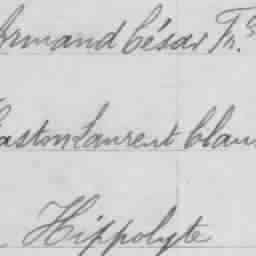 Armand César Fr.s
Gaston Laurent Clau
Hippolyte